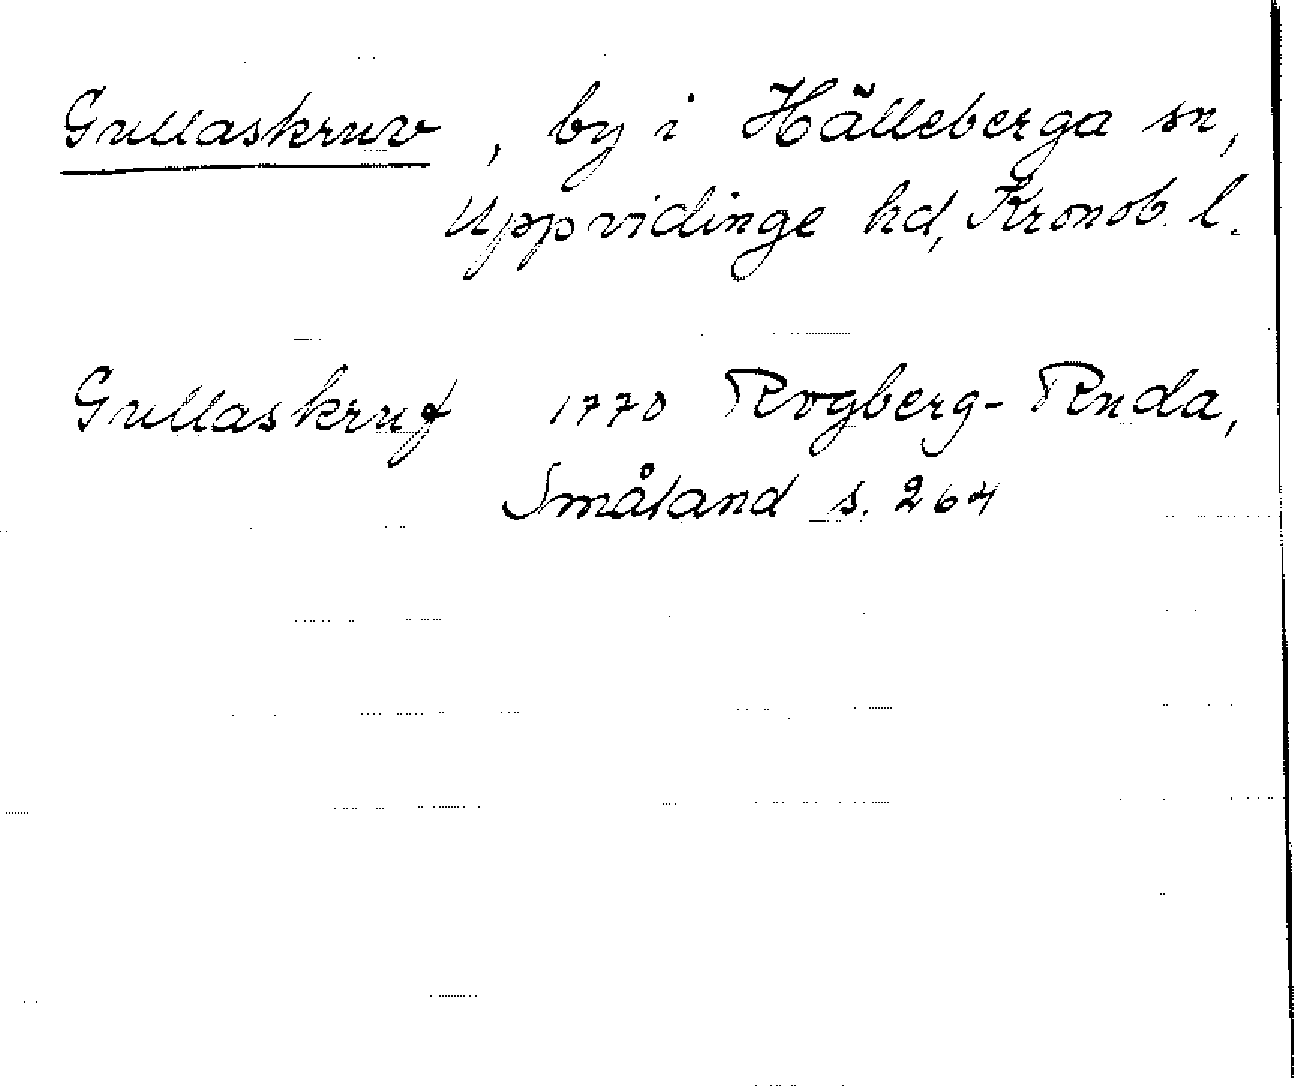 Gullaskruv, by i Hälleberga sn,
Uppvidinge hd, Kronob. l.
Gullaskruf 1770 Rogberg-Ruda,
Småland s. 264